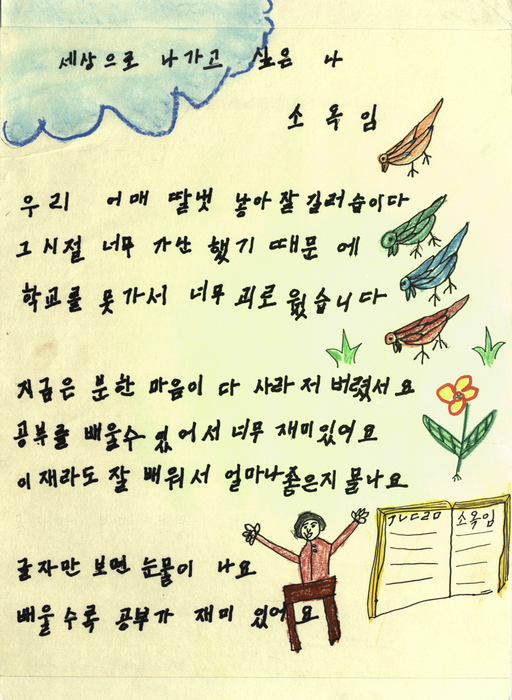 세상으로 나가고 싶은 나
소 옥 임
우리 어매 딸넷 낳아 잘 길러 습이다
그 시절 너무 가난 했기 때문에
학교를 못가서 너무 괴로 웠습니다
지금은 분한 마음이 다 사라저 버렸서요
공부를 배울수 있어서 너무 재미있어요
이재라도 잘 배워서 얼마나 좋은지 몰나요
글자만 보면 눈물이 나요
배울수록 공부가 재미 있어요
ㄱㄴㄷㄹㅁ 소옥임